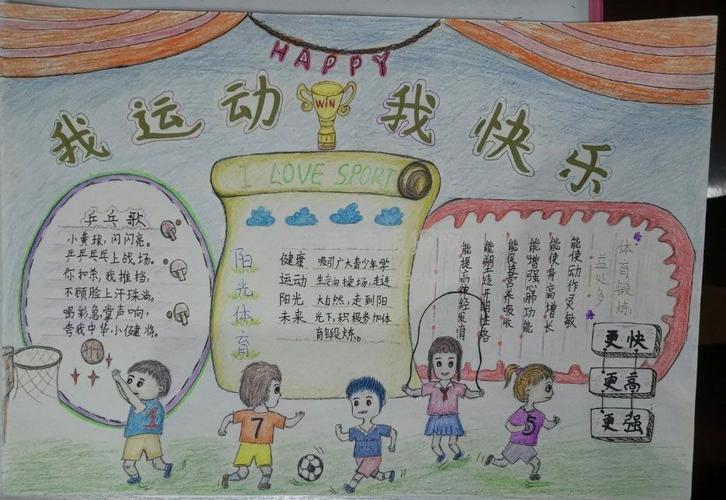 HAPPY
我运动
WIN
我快乐
I LOVE SPORT
乒乓歌
小黄球，闪闪亮。
乒乒乓乓上战场。
你扣杀，我推挡，
不顾脸上汗珠淌。
喝彩急掌声响，
夸我中华小健将。
阳光体育
健康
运动
阳光
未来
吸引广大青少年学
生走向操场、走进
大自然、走到阳
光下，积极参加体
育锻炼。
体育锻炼
益处多
能使动作灵敏
能使身高增长
能增强心肺功能
能促进营养吸收
能塑造开朗性格
能提高神经发育
更快
更高
更强
1
7
5